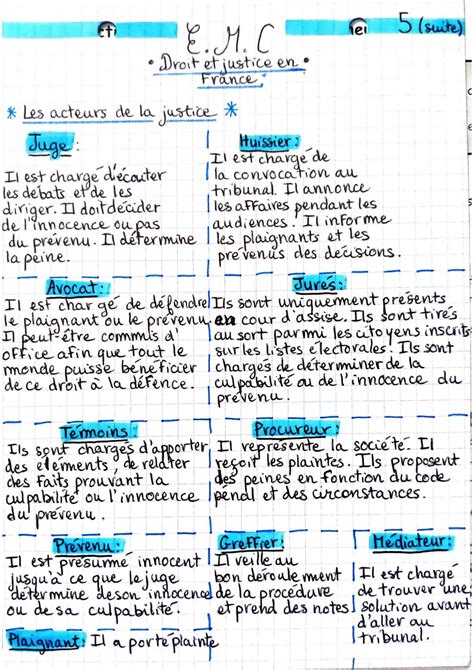 E.M.C
5 (suite)
• Droit et justice en •
France
* Les acteurs de la justice *
Juge:
Il est chargé d'écouter
les débats et de les
diriger. Il doit décider
de l'innocence ou pas
du prévenu. Il détermine
la peine.
Huissier:
Il est chargé de
la convocation au
tribunal. Il annonce
les affaires pendant les
audiences. Il informe
les plaignants et les
prévenus des décisions.
Avocat:
Il est chargé de défendre
le plaignant ou le prévenu
Il peut-être commis d'
office afin que tout le
monde puisse bénéficier
de ce droit à la défence.
Jurés:
Ils sont uniquement présents
en cour d'assise. Ils sont tirés
au sort parmi les citoyens inscrits
sur les listes électorales. Ils sont
chargés de déterminer de la
culpabilité ou de l'innocence du
prévenu.
Témoins:
Ils sont chargés d'apporter
des éléments, de relater
des faits prouvant la
culpabilité ou l'innocence
du prévenu.
Procureur:
Il représente la société. Il
reçoit les plaintes. Ils proposent
des peines en fonction du code
penal et des circonstances.
Prévenu:
Il est présumé innocent
jusqu'à ce que le juge
détermine de son innocence
ou de sa culpabilité.
Greffier:
Il veille au
bon déroulement
de la procédure
et prend des notes
Médiateur:
Il est chargé
de trouver une
solution avant
d'aller au
tribunal.
Plaignant: Il a porté plainte